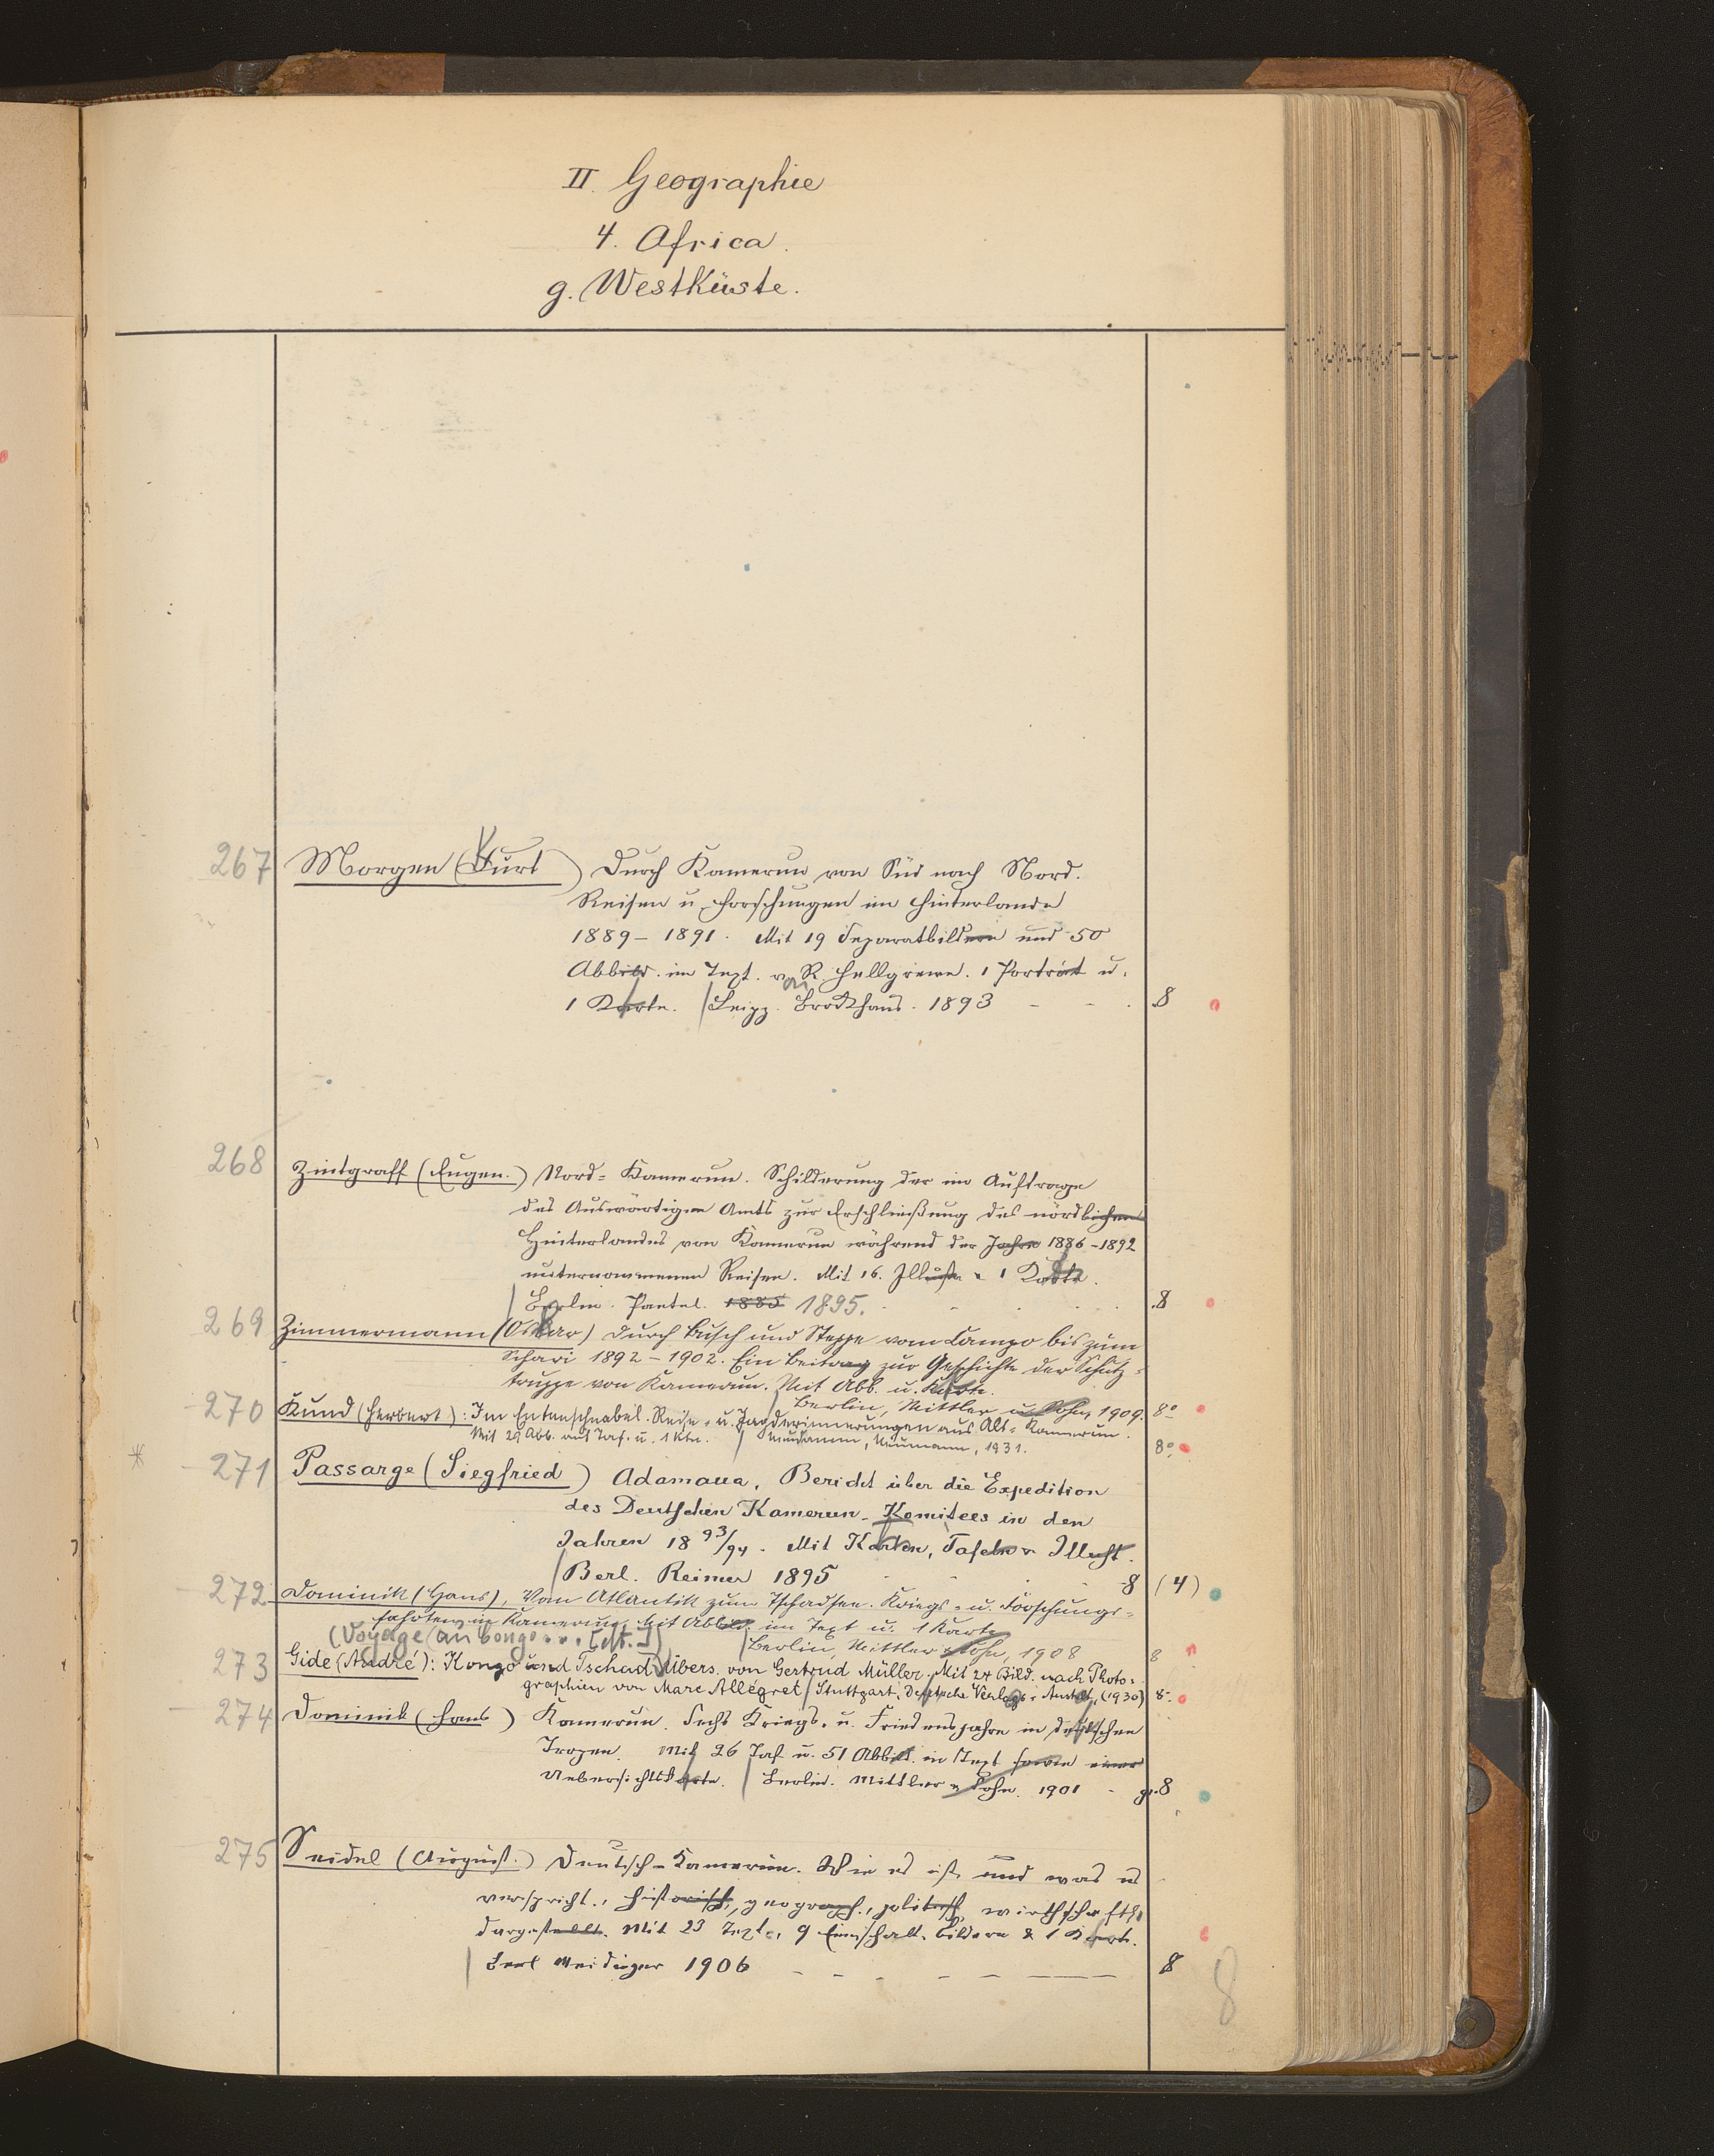 II. Geographie
4. Africa.
g. Westküste.
267 Morgen (Kurt) Durch Kamerun von Süd nach Nord.
Reisen u. Forschungen im Hinterlande
1889–1891. Mit 19 Separatbildern und 50
Abbild. im Text. von R. Hellgrewe. 1 Porträt u.
1 Karte. Leipz. Brockhaus. 1893 - - . 8
268 Zintgraff (Eugen.) Nord-Kamerun. Schilderung der im Auftrage
des Auswärtigen Amts zur Erschließung des nördlichen
Hinterlandes von Kamerun während der Jahre 1886–1892
unternommenen Reisen. Mit 16. Illustr. u. 1 Karte.
Berlin. Paetel. 1885 1895. 8
269 Zimmermann (Oskar) Durch Busch und Steppe vom Campo bis zum
Schari 1892–1902. Ein Beitrag zur Geschichte der Schutz-
truppe von Kamerun. Mit Abb. u. Karte.
Berlin, Mittler u. Sohn, 1909. 8°
270 Kund (Herbert): Im Entenschnabel. Reise- u. Jagderinnerungen aus Alt-Kamerun.
Mit 29 Abb. auf Taf. u. 1 Kte. Neudamm, Neumann, 1931. 8°
* 271 Passarge (Siegfried) Adamaua. Bericht über die Expedition
des Deutschen Kamerun-Komitees in den
Jahren 1893/94. Mit Karten, Tafeln u. Illustr.
Berl. Reimer 1895 8 (4)
272 Dominik (Hans), Vom Atlantik zum Tschadsee. Kriegs- u. Forschungs-
fahrten in Kamerun. Mit Abbild. im Text u. 1 Karte
Berlin, Mittler & Sohn, 1908 8
(Voyage au Congo ... [dt.])
273 Gide (André): Kongo und Tschad. Übers. von Gertrud Müller. Mit 24 Bild. nach Photo-
graphien von Marc Allégret. Stuttgart: Deutsche Verlags-Anstalt, (1930) 8°
274 Dominik (Hans) Kamerun. Sechs Kriegs- u. Friedensjahre in deutschen
Tropen. Mit 26 Taf. u. 51 Abbild. in Text sowie einer
Uebersichtskarte. Berlin. Mittler & Sohn. 1901 - gr. 8
275 Seidel (August.) Deutsch-Kamerun. Wie es ist und was es
verspricht. Historisch, geograph., politisch, wirthschaftl.
dargestellt. Mit 23 Text-, 9 Einschalt-bildern & 1 Karte.
Berl Meidinger 1906 - - - - - 8
8